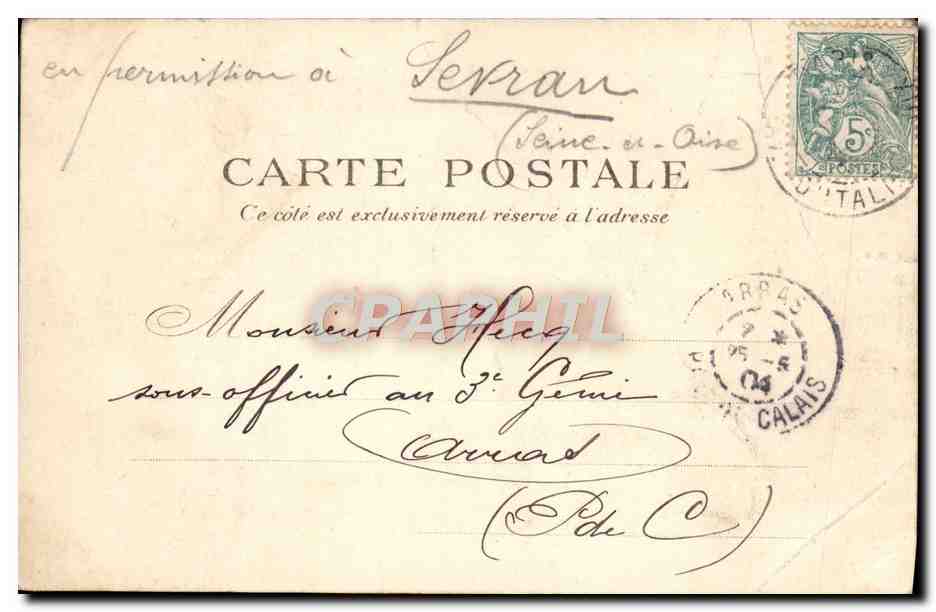 en permission à Sevran
(Seine-et-Oise)
5c
POSTES
D'ITALI
CARTE POSTALE
Ce côté est exclusivement réservé à l'adresse
CPARHIL
ARRAS
2 *
25 -5
04
CALAIS
Monsieur Hecq
sous-officier au 3e Génie
Arras
(P. de C)